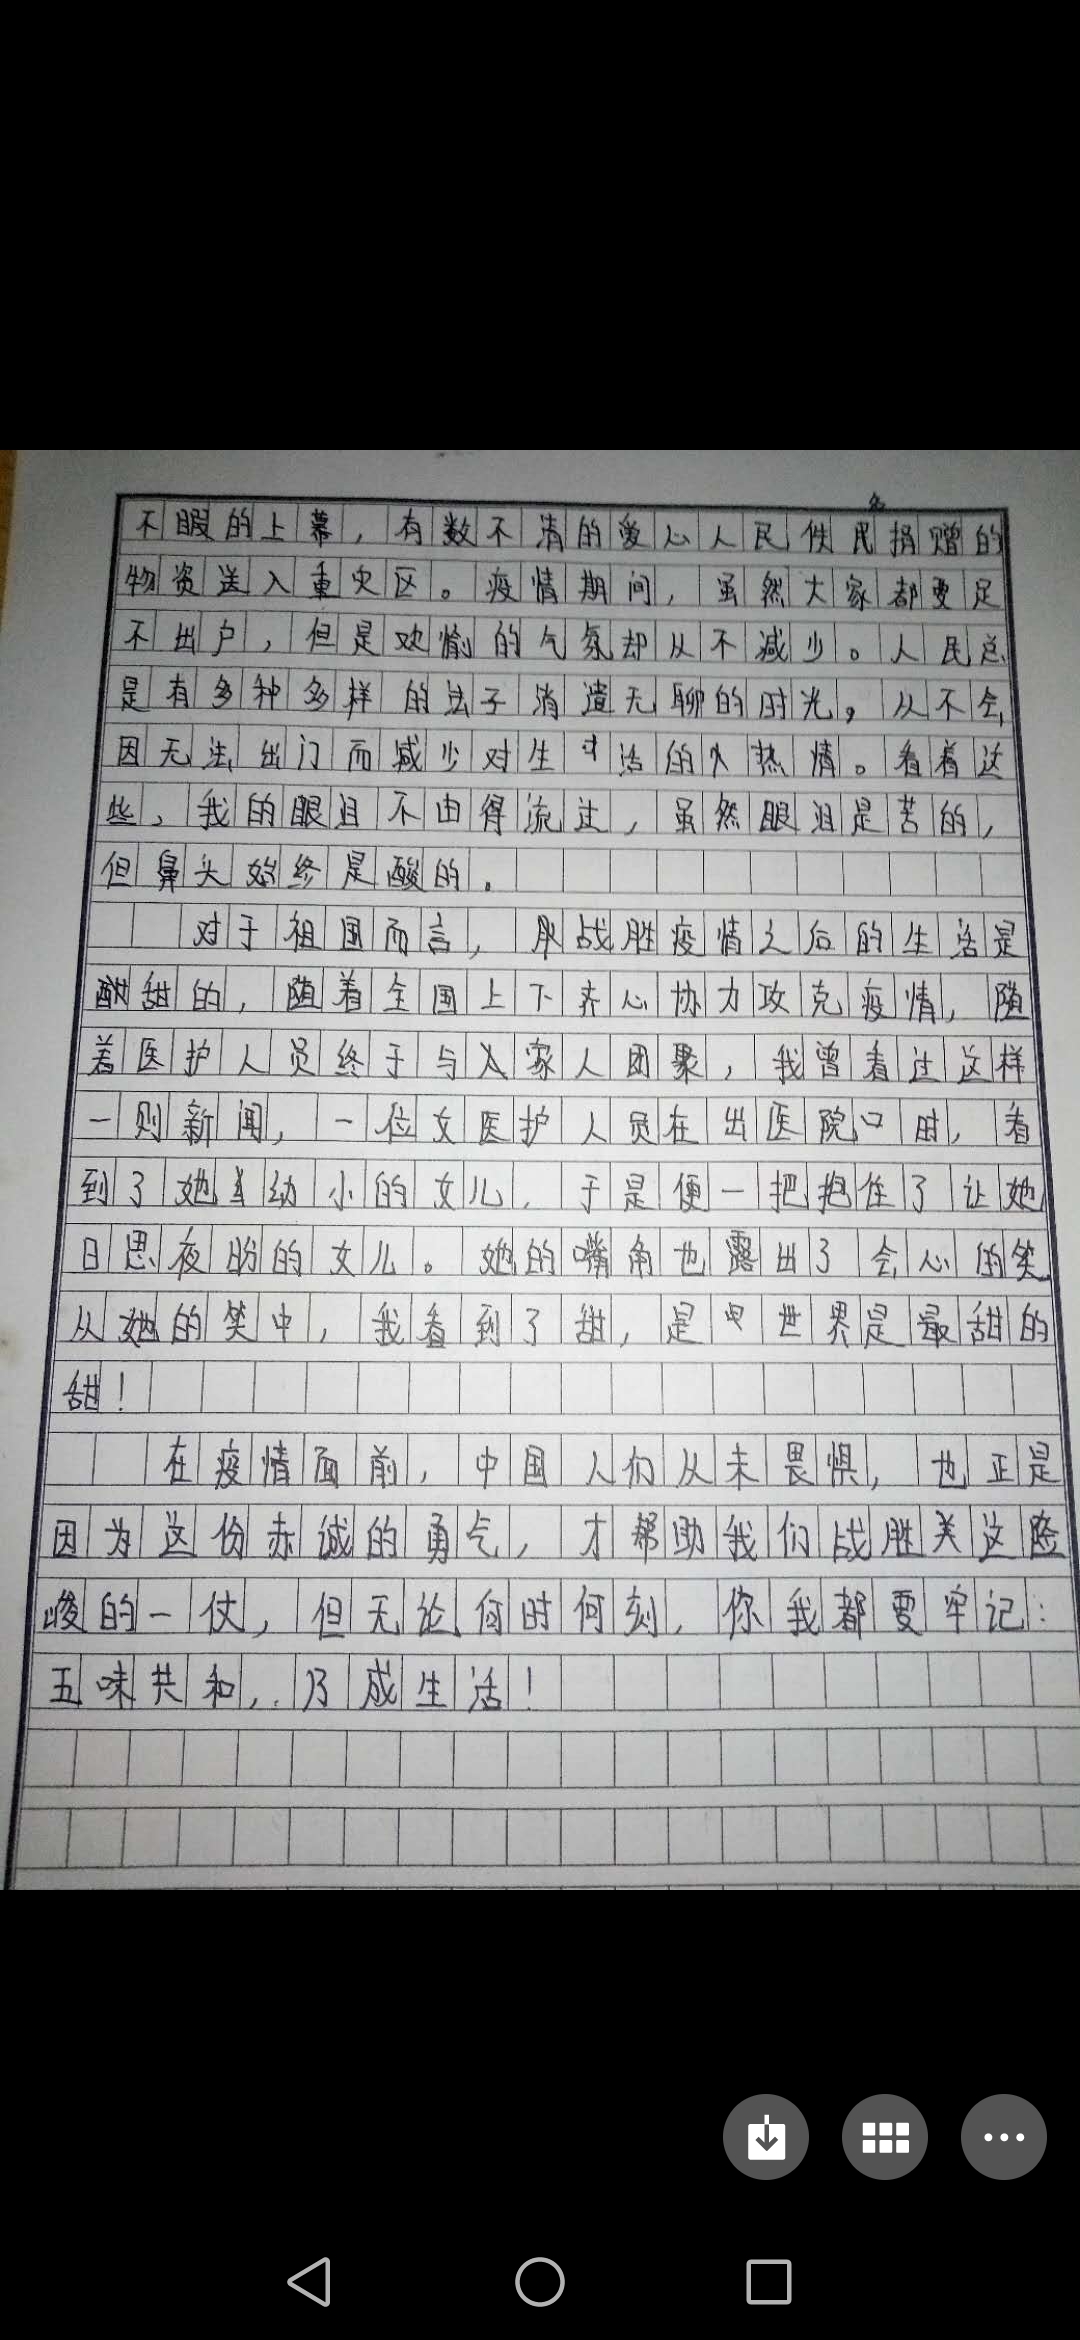 不暇的上幕，有数不清的爱心人民件民捐赠的
物资送入重灾区。疫情期间，虽然大家都要足
不出户，但是欢愉的气氛却从不减少。人民总
是有多种多样的法子消遣无聊的时光，从不会
因无法出门而减少对生活的热情。看着这
些，我的眼泪不由得流过，虽然眼泪是苦的，
但鼻头始终是酸的。
对于祖国而言，战胜疫情之后的生活是
甜的，随着全国上下齐心协力攻克疫情，随
着医护人员终于与家人团聚，我曾看过这样
一则新闻，一位女医护人员在出医院口时，看
到了她幼小的女儿，于是便一把抱住了让她
日思夜盼的女儿。她的嘴角也露出了会心的笑
从她的笑中，我看到了甜，是世界是最甜的
甜！
在疫情面前，中国人们从未畏惧，也正是
因为这份赤诚的勇气，才帮助我们战胜关这险
峻的一仗，但无论何时何刻，你我都要牢记：
五味共和，乃成生活！